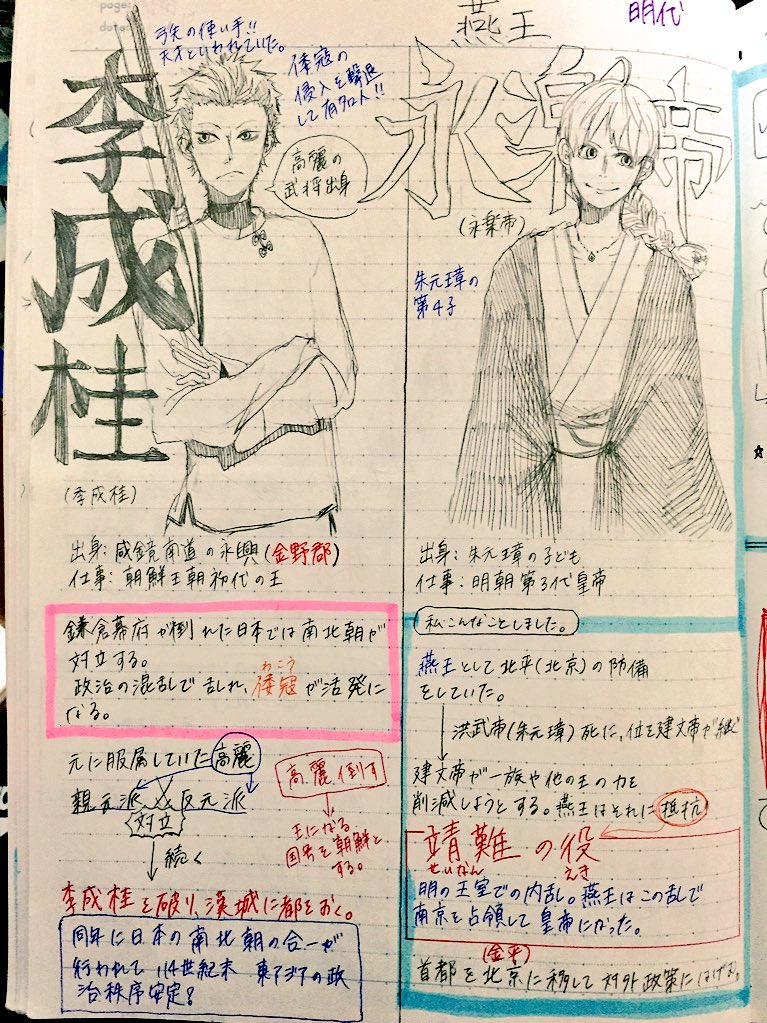 page:
date:
明代
弓矢の使い手!!
天才といわれていた。
倭寇の
侵入を撃退
して有名人!!
李成桂
高麗の
武将出身
(李成桂)
出身:咸鏡南道の永興(金野郡)
仕事:朝鮮王朝初代の王
鎌倉幕府が倒れた日本では南北朝が
対立する。
政治の混乱で乱れ、倭寇が活発に
わこう
なる。
元に服属していた高麗
親元派 反元派
対立
続く
高麗倒す
王になる
国号を朝鮮と
する。
李成桂を破り、漢城に都をおく。
同年に日本の南北朝の合一が
行われて 14世紀末 東アジアの政
治秩序安定?
燕王
永楽帝
(永楽帝)
朱元璋の
第4子
出身:朱元璋の子ども
仕事:明朝第3代皇帝
私こんなことしました。
燕王として北平(北京)の防備
をしていた。
洪武帝(朱元璋)死に、位を建文帝が継ぐ
建文帝が一族や他の王の力を
削減しようとする。燕王はそれに抵抗
靖難の役
せいなん えき
明の王室での内乱。燕王はこの乱で
南京を占領して皇帝になった。
首都を北京に移して対外政策にはげむ。